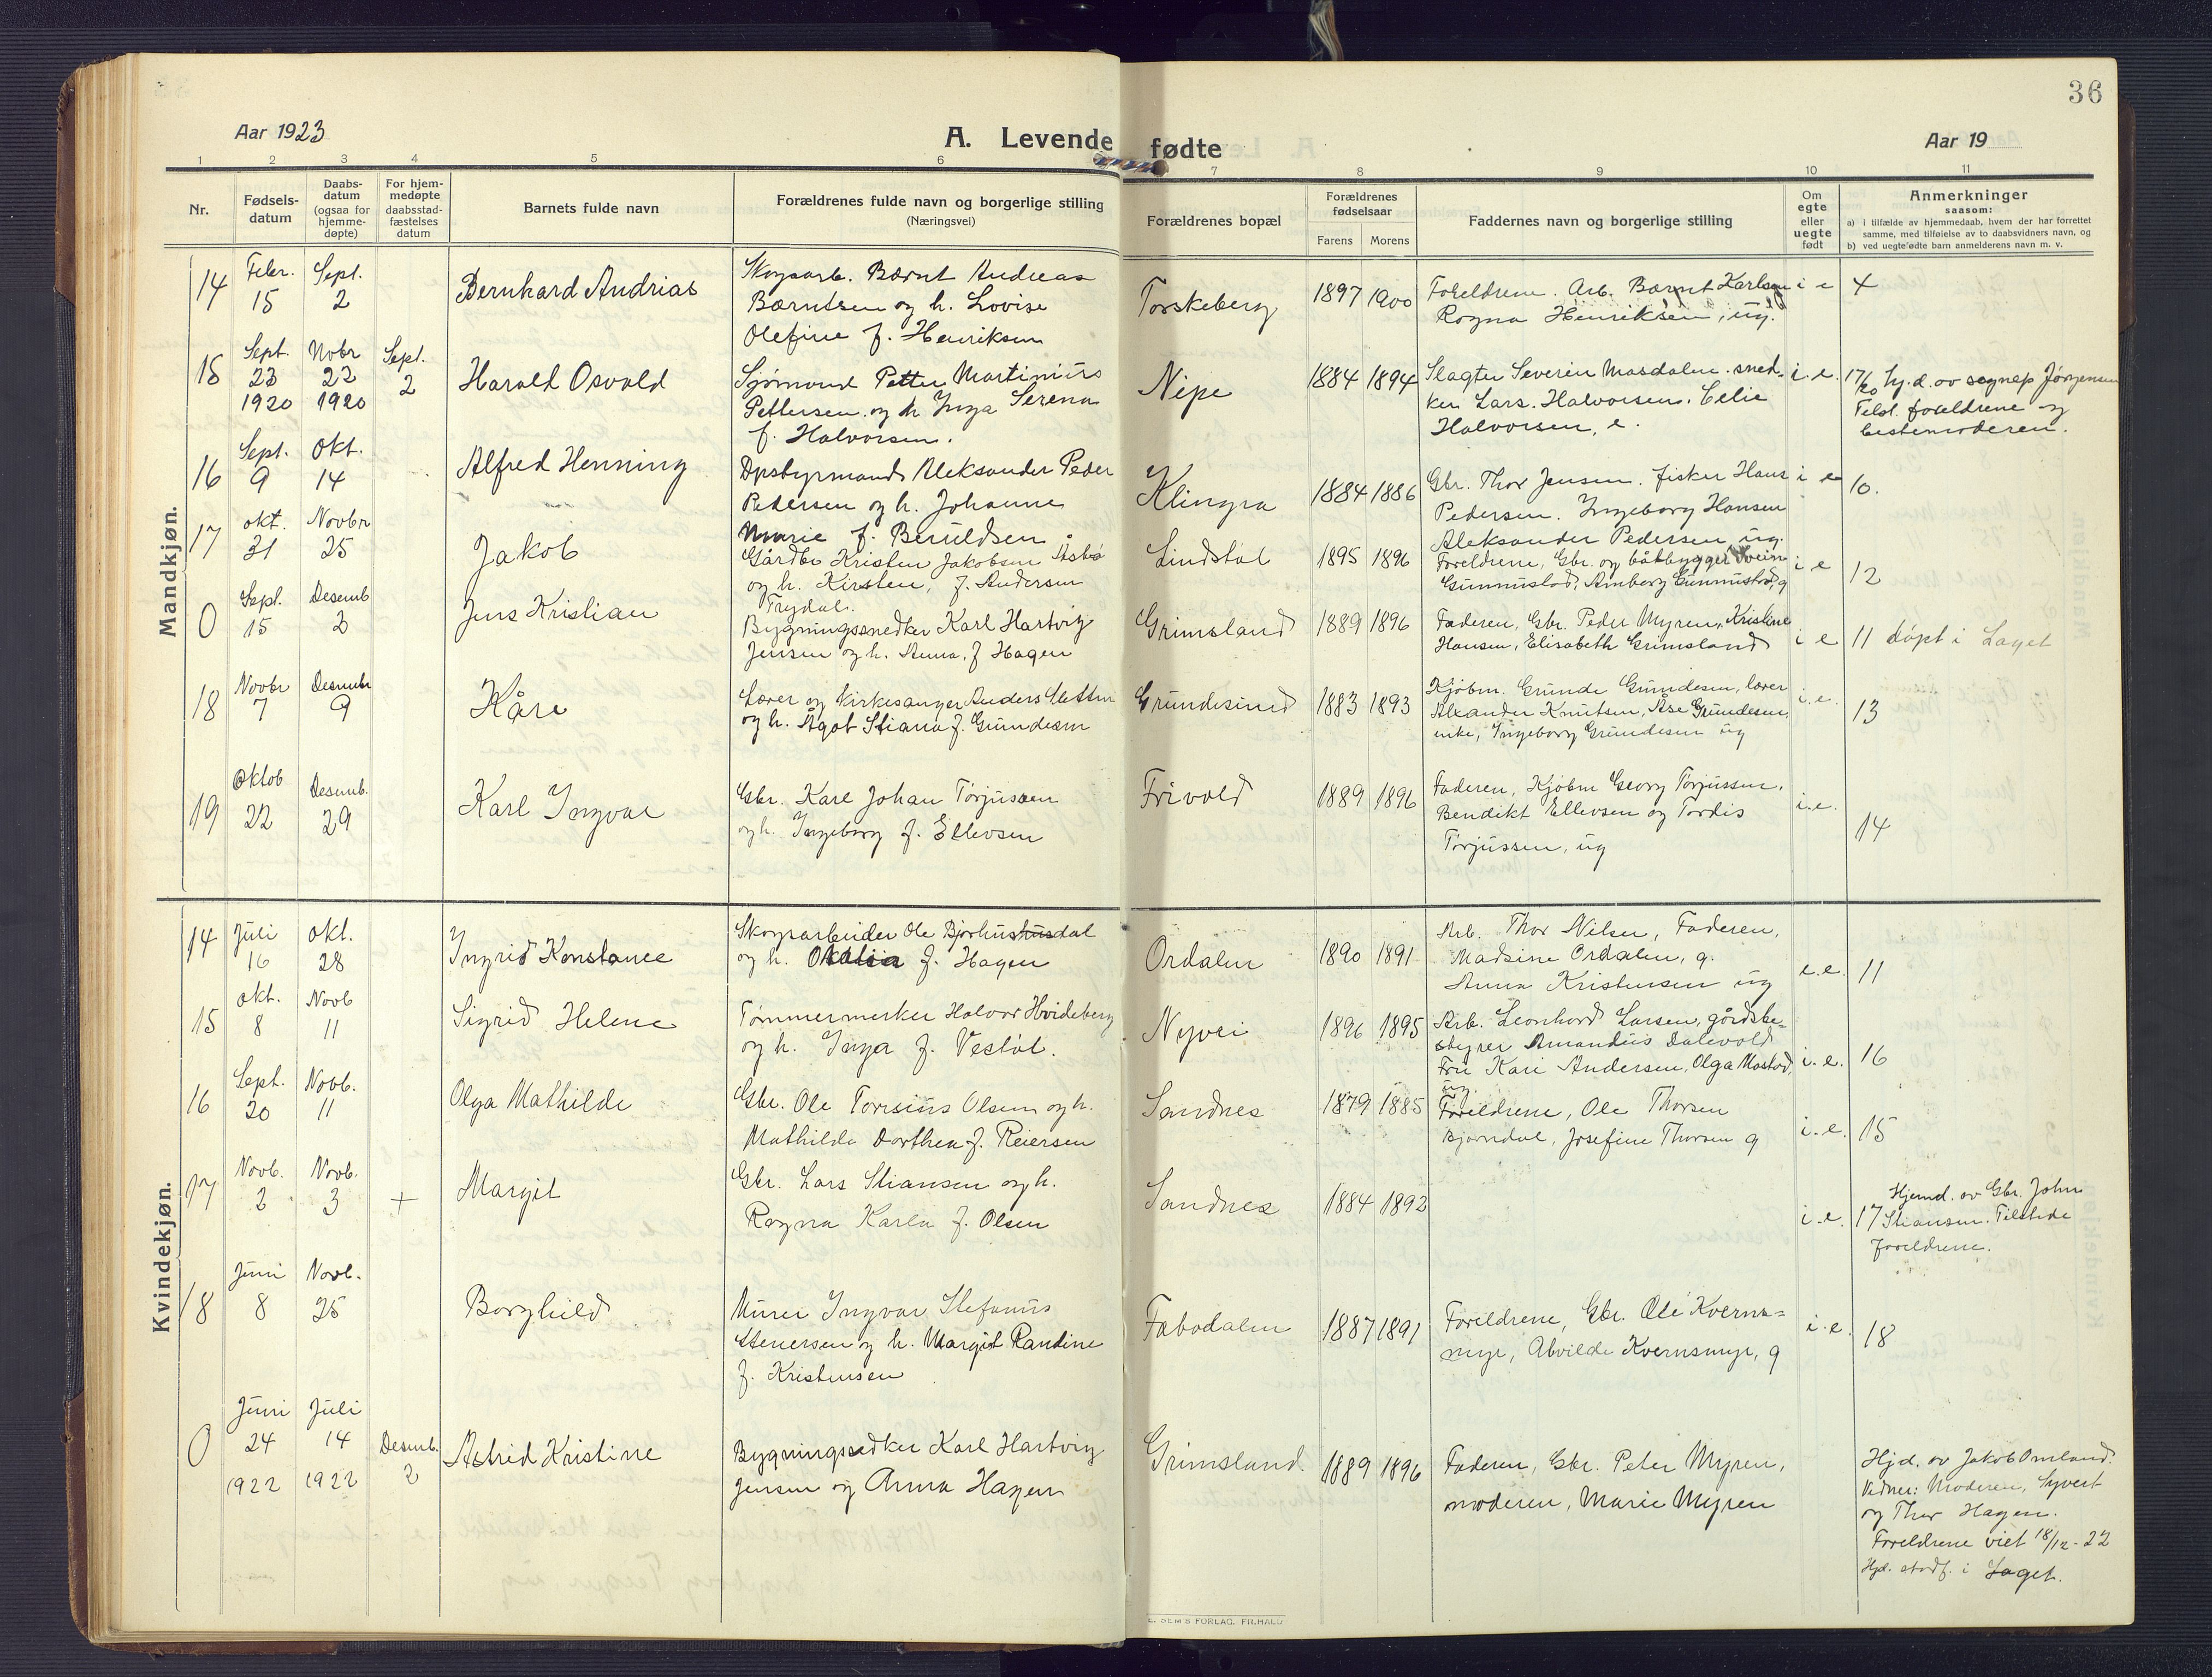 36
Aar 1923
A. Levende fødte
Aar 19
1 2 3 4 5 6 7 8 9 10 11
Nr.
Fødsels-
datum
Daabs-
datum
(ogsaa for
hjemme-
døpte)
For hjem-
medøpte
daabsstad-
fæstelses
datum
Barnets fulde navn
Forældrenes fulde navn og borgerlige stilling
(Næringsvei)
Forældrenes bopæl
Forældrenes
fødselsaar
Farens Morens
Faddernes navn og borgerlige stilling
Om
egte
eller
uegte
født
Anmerkninger
saasom:
a) i tilfælde av hjemmedaab, hvem der har forrettet
samme, med tilføielse av to daabsvidners navn, og
b) ved uegtefødte barn anmelderens navn m. v.
Mandkjøn.
14
Febr.
15
Sept.
2
Bernhard Andrias
Skogsarb. Bærnt Andreas
Bærntsen og h. Lovise
Olefine f. Henriksen
Torskeberg
1897 1900
Foreldrene. Arb. Bærnt Karlsen
Ragna Henriksen, ug.
i e
4
15
Sept.
23
1920
Nobr
22
1920
Sept.
2
Harald Osvald
Sjømand Petter Martinius
Pettersen og h Inga Serena
f. Halvorsen.
Nipe
1884 1894
Slagter Severin Masdalen. sned-
ker Lars. Halvorsen. Celie
Halvorsen, e.
i. e.
17/10 hj.d. av sognep Jørgensen
Telst. foreldrene og
bestemoderen.
16
Sept.
9
Okt.
14
Alfred Henning
Dpstyrmand Aleksander Peder
Pedersen og h. Johanne
Marie f. Beruldsen
Klingra
1884 1886
Gbr. Thor Jensen. fisker Hans
Pedersen. Ingeborg Hansen
Aleksander Pedersen ug.
i e
10.
17
okt.
31
Novbr
25
Jakob
Gårdbr Kristen Jakobsen Åsbø
og h. Kirsten, f. Andersen
Trydal.
Lindstøl
1895 1896
Foreldrene, Gbr. og båtbygger Svein
Gunnustad, Arnberg Gunnustad, g
i e
12
0
Sept.
15
Desemb
2
Jens Kristian
Bygningssnedker Karl Hartvig
Jensen og h. Anna, f Hagen
Grimsland
1889 1896
Faderen, Gbr. Peder Myren, Kristine
Hansen, Elisabeth Grimsland
i e
11 døpt i Laget
18
Novbr
7
Desembr
9
Kåre
Lærer og kirkesanger Anders Sletten
og h. Ågot Stiana f. Gundesen
Grundesund
1883 1893
Kjøbm. Gunde Gundesen, lærer
Alexander Knutsen, Åse Gundesen,
enke, Ingeborg Gundesen ug
i. e.
13
19
Oktob
22
Desemb.
29
Karl Ingvar
Gbr. Karl Johan Torjussen
og h. Ingeborg f. Ellevsen
Frivold
1889 1896
Faderen, Kjøbm Georg Torjussen,
Bendikt Ellevsen og Tordis
Torjussen, ug
i.e.
14
Kvindekjøn.
14
Juli
16
Okt.
28
Ingrid Konstance
Skogsarbeider Ole Bjorhushusdal
og h. f. Hagen
Ordalen
1890 1891
Arb. Thor Nilsen, Faderen,
Madsine Ordalen, g.
Anna Kristensen ug
e.e.
11
15
Okt.
8
Novb
11
Sigrid Helene
Tømmermerker Halvor Hvideberg
og h. Inga f. Vestøl.
Nyvei
1896 1895
Arb. Leonhard Larsen, gårdsbe-
styrer Amandus Dalevold
Fru Kari Andersen, Olga Mostad,
ug.
i. e.
16
16
Sept.
20
Novb.
11
Olga Mathilde
Gbr. Ole Torrsius Olsen og h.
Mathilde Dorthea f. Reiersen
Sandnes
1879 1885
Foreldrene, Ole Thorsen
Bjørndal, Josefine Thorsen g
i. e.
15
17
Novb.
2
Novb.
3
+
Margit
Gbr. Lars Stiansen og h.
Ragna Karla f. Olsen
Sandnes
1884 1892
i. e.
17
Hjemd. av Gbr. John
Stiansen. Tilstede
foreldrene.
18
Juni
8
Novb.
25
Borghild
Murer Ingvar Stefanus
Stenersen og h. Margit Randine
f. Kristensen
Fabodalen
1887 1891
Foreldrene, Gbr. Ole Kverns-
myr, Alvilde Kvernsmyr, g
i. e.
18
0
Juni
24
1922
Juli
14
1922
Desemb.
2
Astrid Kristine
Bygningssedker Karl Hartvig
Jensen og Anna Hagen
Grimsland.
1889 1896
Faderen, Gbr. Peter Myren,
moderen, Marie Myren
Hjd. av Jakob Omland.
Vidner: Moderen, Syvert
og Thor Hagen.
Foreldrene viet 18/12-22
Hjd. stadf. i Laget.
E. SEM'S FORLAG, FR.HALD